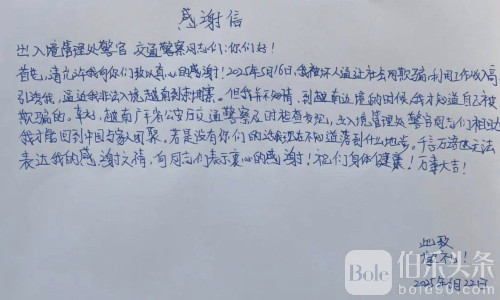 感谢信
出入境管理处警官 交通警察同志们:你们好!
首先,请允许我向你们致以真心的感谢!2025年5月16日,我被坏人逼迫去用欺骗利用工作收入高
引诱我,逼迫我非法入境越南到柬埔寨。但我并不知情,到越南边境的时候,我才知道自己被
欺骗的。幸好,越南广平省公安厅交通警察及时检查发现,出入境管理处警官同志们相助
我才能回到中国与家人团聚。若是没有你们的话我现在不知道落到什么地步。千言万语也无法
表达我的感谢之情,向同志们表示衷心的感谢!祝们身体健康!万事大吉!
此致
敬礼!
2025年5月22日
伯乐头条
Bole
bole90.com